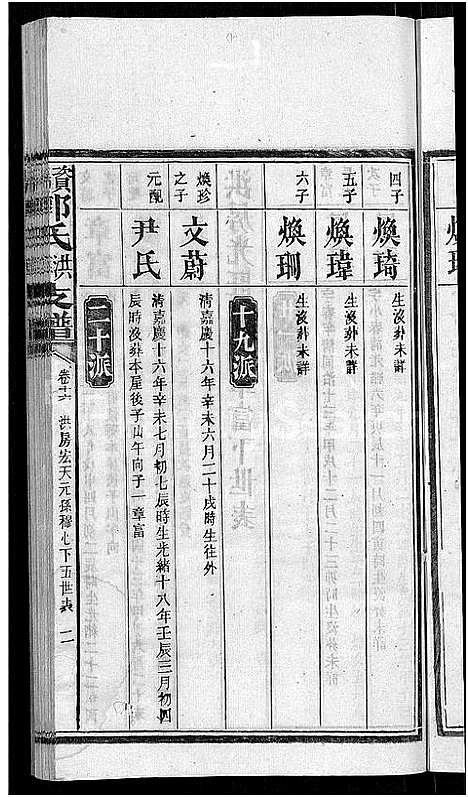 四子 煥琦 生沒葬未詳
五子 煥瑋 生沒葬未詳
六子 煥珊 生沒葬未詳
十九派
煥珍之子 文蔚 清嘉慶十六年辛未六月二十戌時生往外
元配 尹氏 清嘉慶十六年辛未七月初七辰時生光緒十八年壬辰三月初四
辰時沒葬本屋後子山午向子一章富
二十派
資鄧氏洪支譜 卷十六 洪房宏天元孫穆心下五世表 二